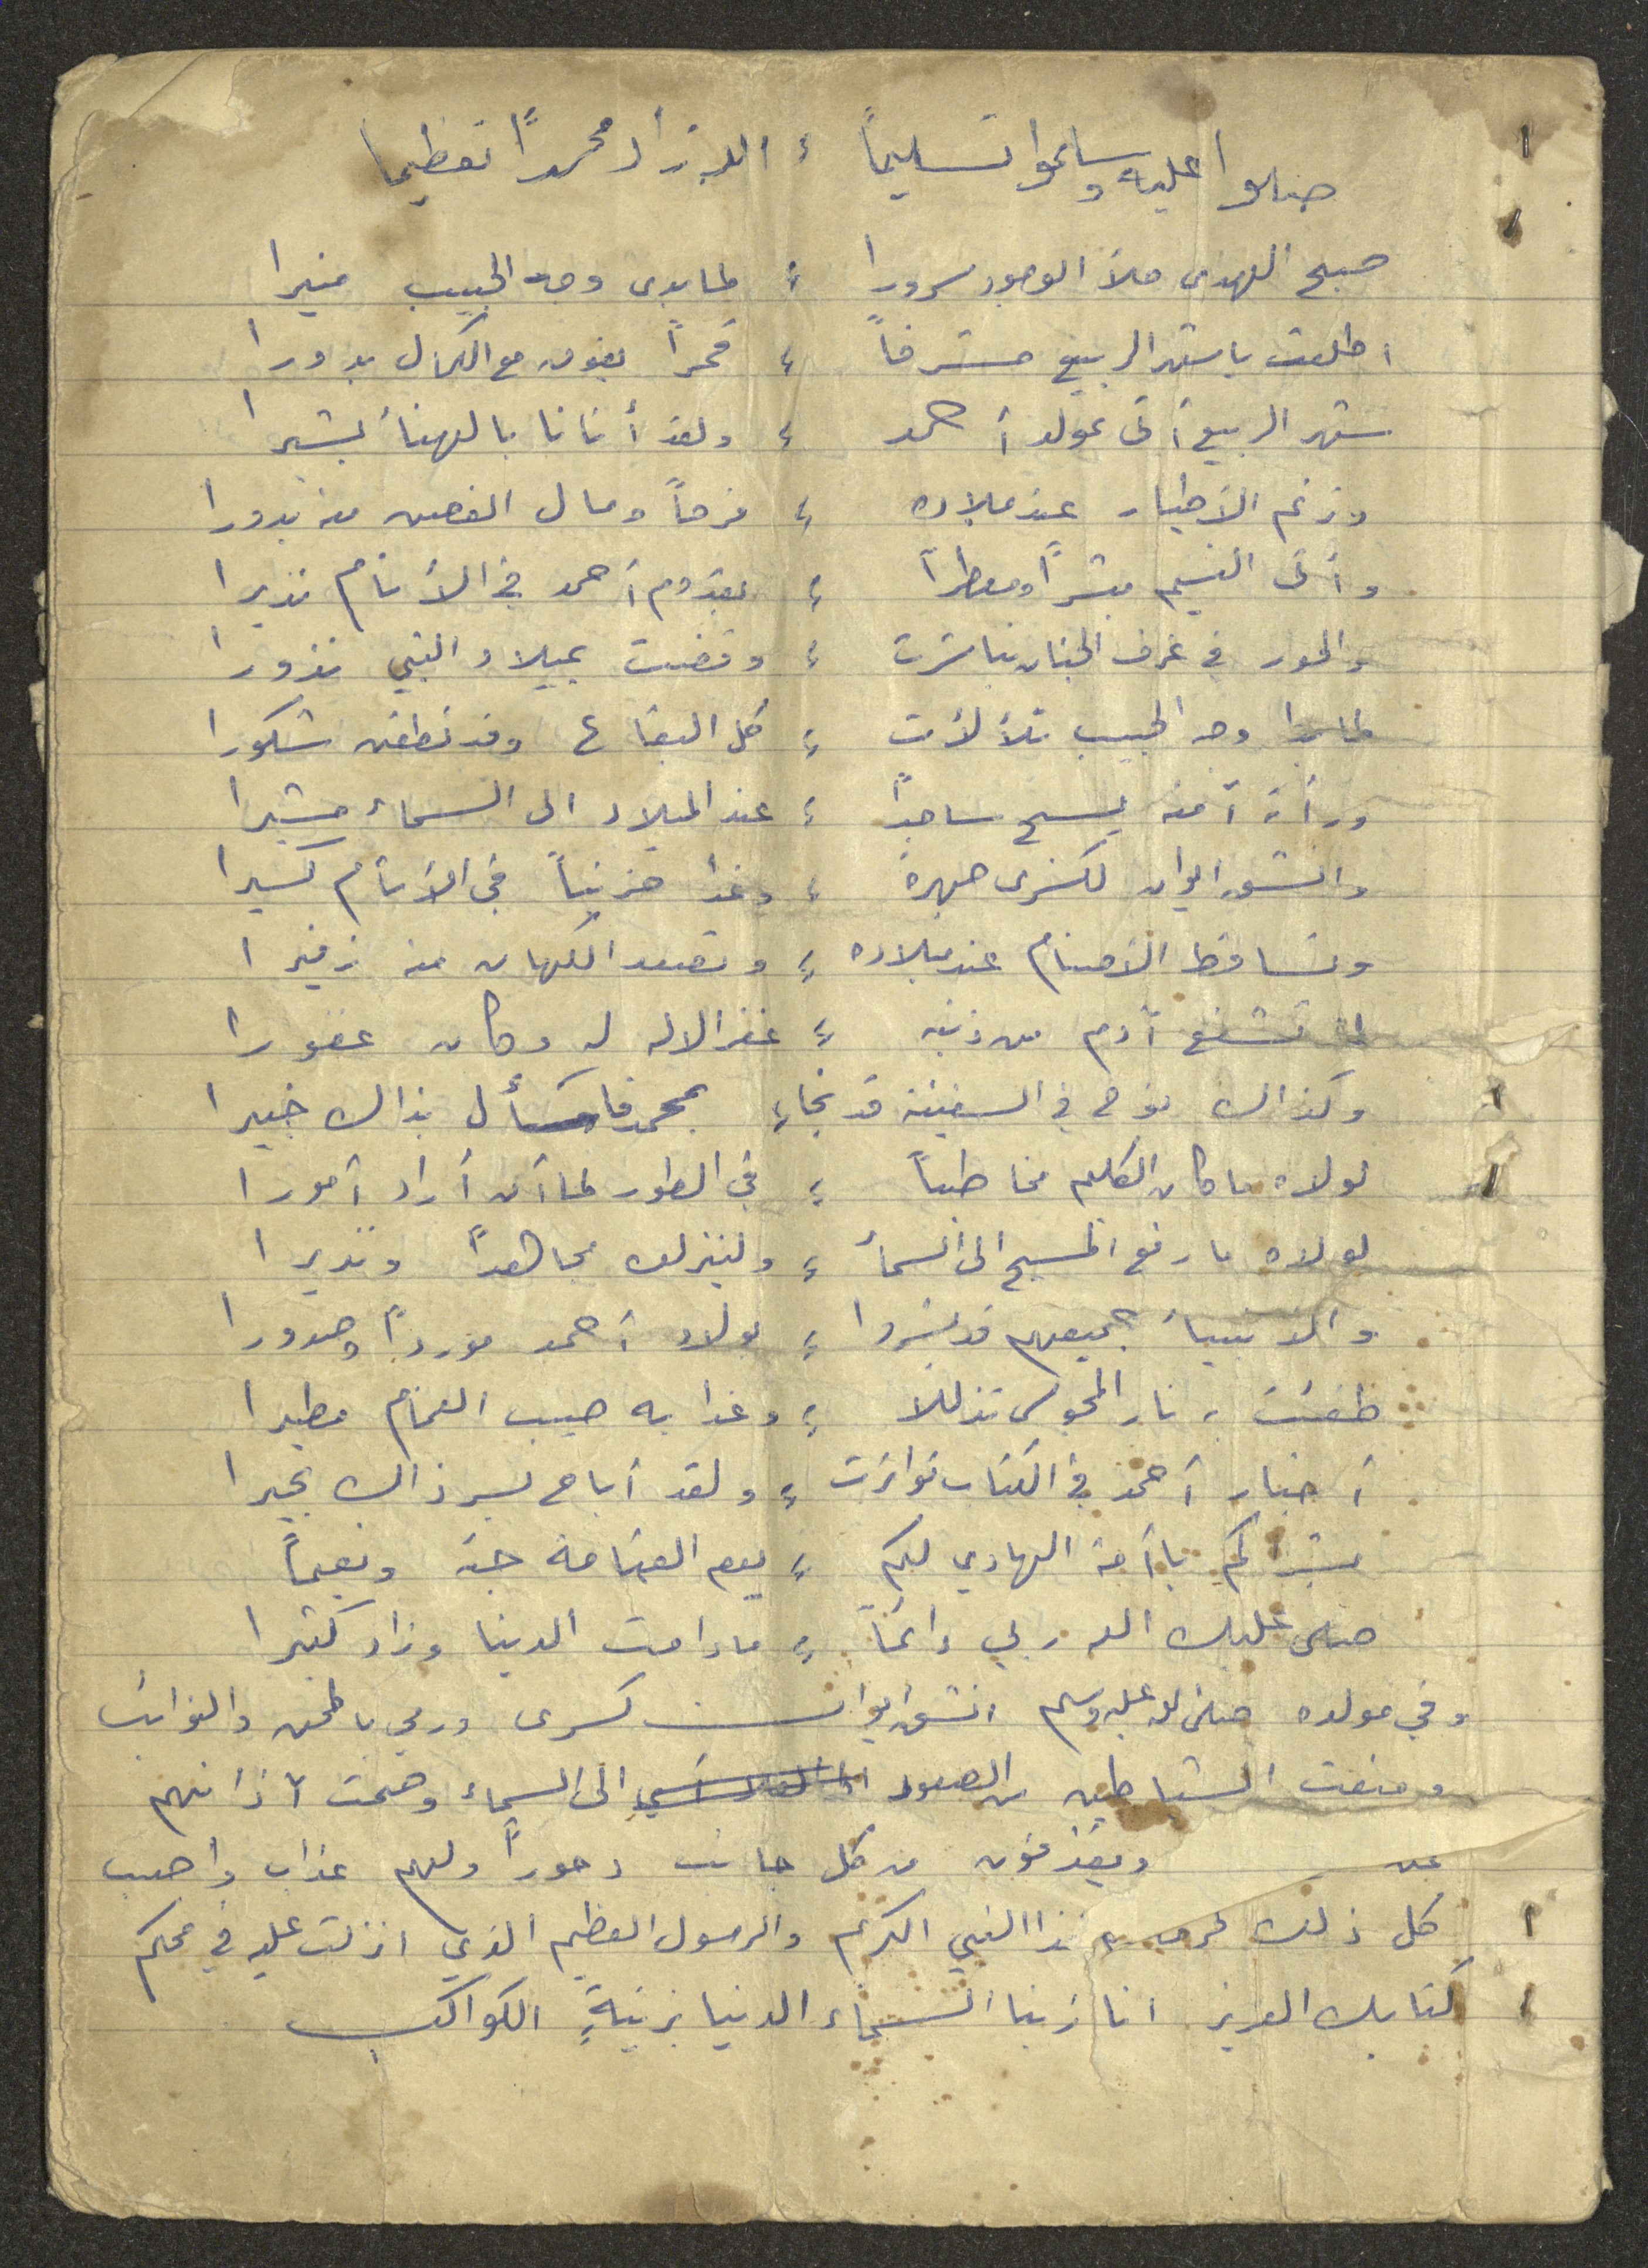 صلوا عليه وسلموا تسليماً ؛ الله زاد محمداً تعظيما
صبح الهدى ملأ الوجود سرورا ؛ لما بدى وجه الحبيب منيرا
اطلعت يا شهر الربيع مشرفاً ؛ قمراً يفوق مع الكمال بدورا
شهر الربيع أتى بمولد أحمد ؛ ولقد أتانا بالهنأ بشيرا
وزغم الأطيار عند ميلاده ؛ فرحاً ومال الغصن منه بدورا
وأتى النسيم مبشراً ومعطراً ؛ بقدوم أحمد في الأنام نذيرا
والحور في غرف الجنان تباشرت ؛ وقضت بميلاد النبي نذورا
لما بدا وجه الحبيب تلألأت ؛ كل البقاع وقد نطقن شكورا
ورأته آمنه يسبح ساجداً ؛ عند الميلاد الى السماء مشيرا
وانشق ايوان لكسرى جهرةً ؛ وغدا حزيناً في الأنام كسيرا
وتساقط الأصنام عند ميلاده ؛ وتصعد الكهان منه زفيرا
لما تشفع آدم من ذنبه ؛ غفر الاله له وكان غفورا
وكذاك نوح في السفينة قد نجا ؛ بمحمد فاسأل بذاك خبيرا
لولاه ما كان الكليم مخاطباً ؛ في الطور لما أن أراد أمورا
لولاه ما رفع المسيح الى السمأ ؛ ولينزلن مجاهداً ونذيرا
والانبيأ جميعهم قد بشروا ؛ بولاد أحمد مورداً وصدورا
طفئت به نار المجوس تذللا ؛ وغدا به صيب الغمام مطيرا
أخبار أحمد في الكتاب تواترت ؛ ولقد أباح بسر ذاك بحيرا
بشراكم يا أمة الهادي لكم ؛ يوم القيامة جنة ونعيماً
صلى عليك الله ربي دائماً ؛ ما دامت الدينا وزاد كثيرا
وفي مولده صلى الله عليه وسلم انشق ايوان كسرى ورمي بالمحن والنوائب
ومنعت الشياطين من الصعود الى السماء وصمت آذانهم
عن ويقذفون من كل جانب دحوراً ولهم عذاب واصب
كل ذلك لحرمة هذا النبي الكريم والرسول العظيم الذي انزلت عليه في محكم
كتابك العزيز انا زينا السماء الدنيا بزينةٍ الكواكب